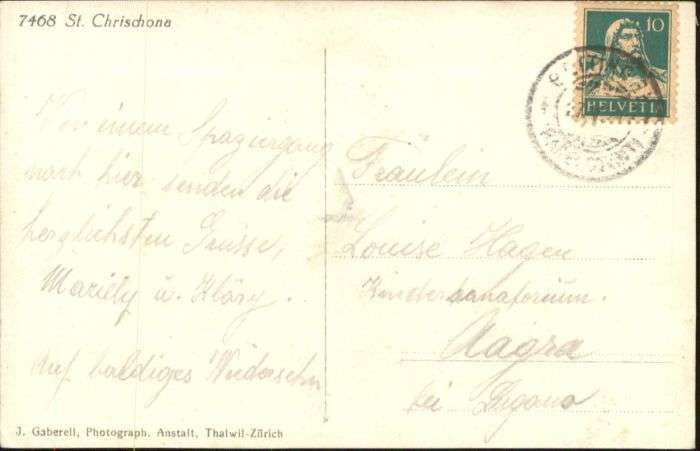 7468 St. Chrischona
10
HELVETIA
Von einem Spaziergang
nach hier senden die
herzlichsten Grüsse,
Mariely u. Kläry.
Auf baldiges Wiedersehn
Fräulein
Louise Hagen
Kindersanatorium.
Aagra
bei Lugano
J. Gaberell, Photograph. Anstalt, Thalwil-Zürich